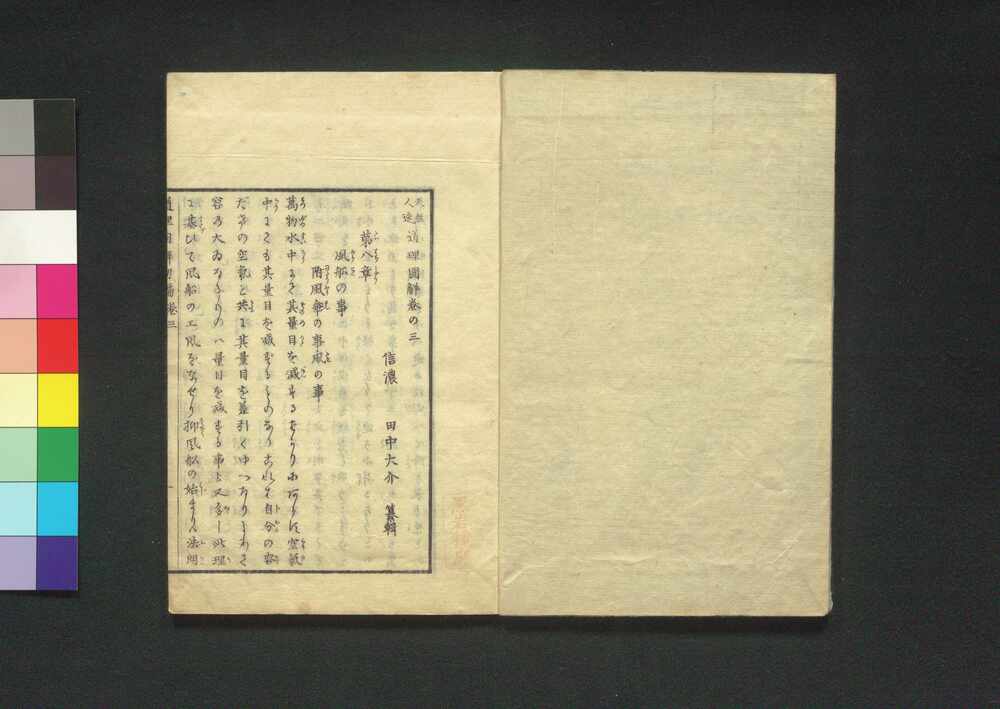 天然人造 道理圖解卷の三
信濃 田中大介 纂輯
第八章
風船の事
附風傘の事風の事
萬物水中にて其量目を減するをかりに
空氣
中にても其量目を減するものなりこれを自分の容
たけの空氣と共に其量目を差引くゆへなりされど
容の大ゐなるものハ量目を減する事も又多し此理
に基ひて風船の工風をなせり抑風船の始まりハ法朗
道理圖解 卷三